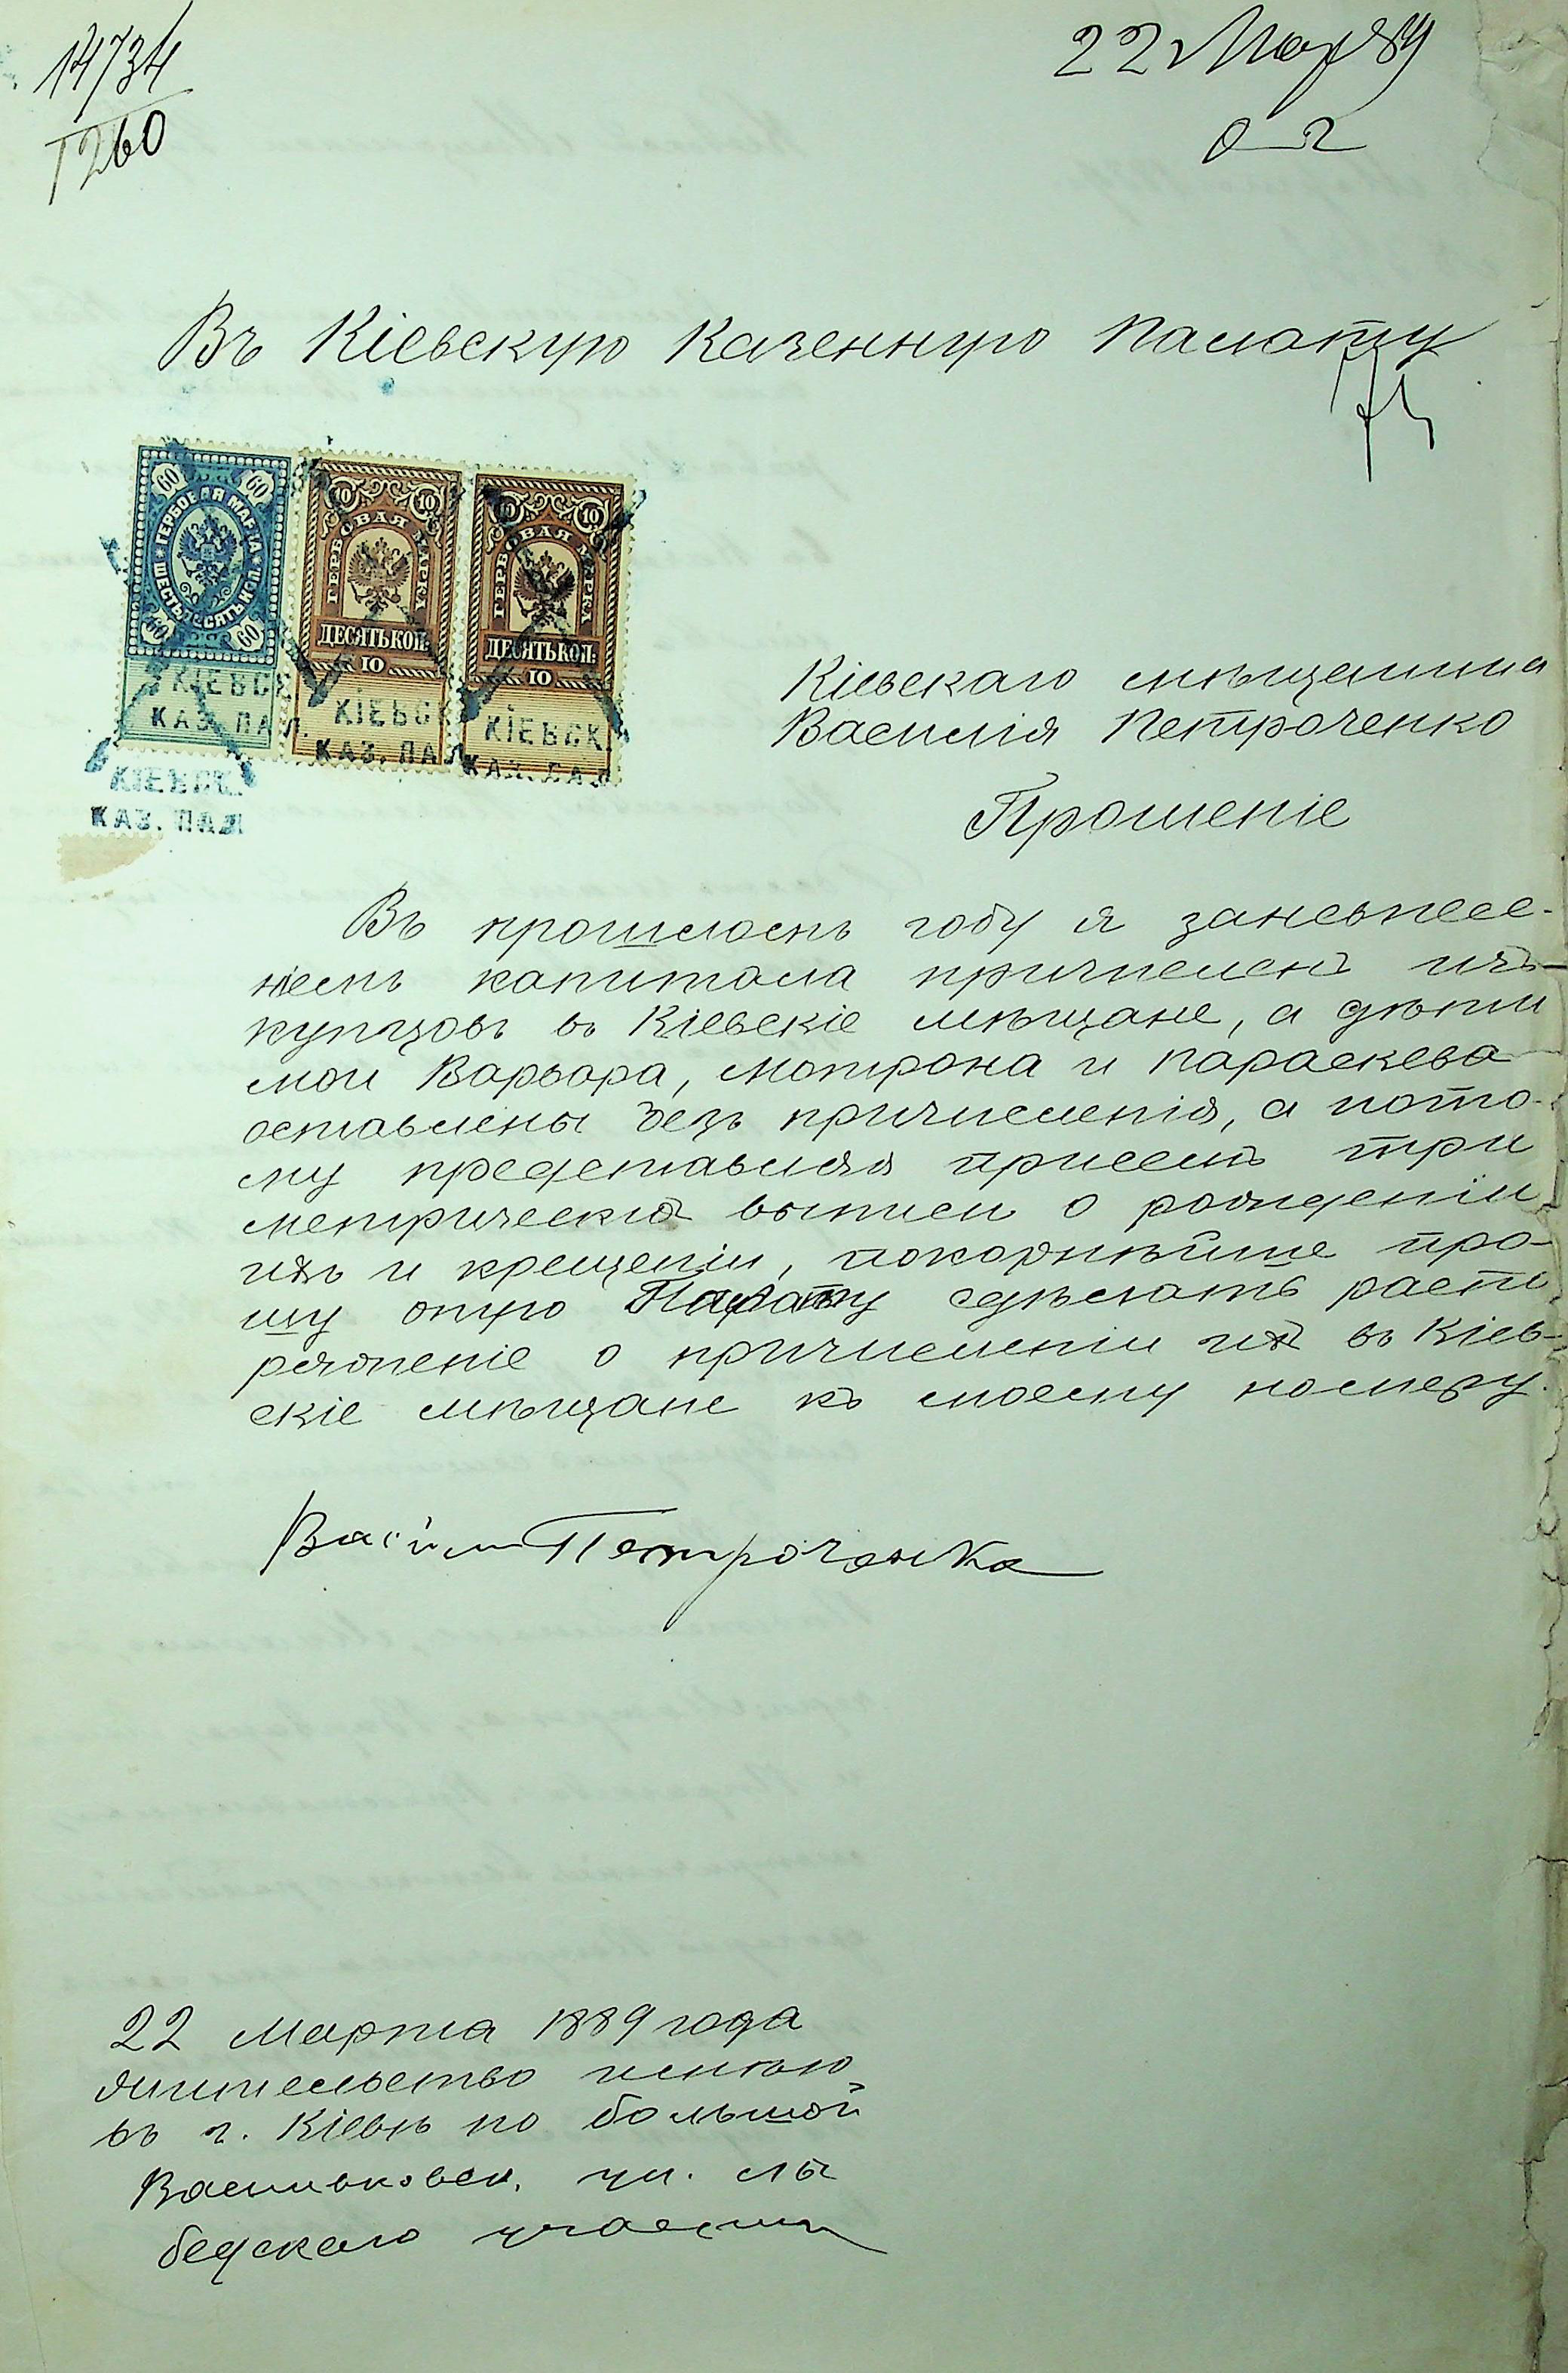 14734
1260
22 Мар 89
Въ Кіевскую Казенную Палату
60 60
ГЕРБОВАЯ МАРКА ШЕСТЬДЕСЯТЪ КОП.
60 60
10 10
ГЕРБОВАЯ МАРКА
ДЕСЯТЬ КОП.
10
10 10
ГЕРБОВАЯ МАРКА
ДЕСЯТЬ КОП.
10
КІЕВСК.
КАЗ. ПАЛ.
КІЕВСК.
КАЗ. ПАЛ.
КІЕВСК.
КАЗ. ПАЛ.
КІЕВСК.
КАЗ. ПАЛ
Кіевскаго мѣщанина
Василія Петроченко
Прошеніе
Въ прошломъ году я заневнесе-
ніемъ капитала причисленъ изъ
купцовъ въ Кіевскіе мѣщане, а дѣти
мои Варвара, Мотрона и Параскева
оставлены безъ причисленія, а пото-
му представляя присемъ три
метрическія выписи о рожденіи
ихъ и крещеніи, покорнѣйше про-
шу оную Палату сдѣлать распо
ряженіе о причисленіи ихъ въ Кіев-
скіе мѣщане къ моему номеру.
Васили Петроченка
22 Марта 1889 года
жительство имѣю
въ г. Кіевѣ по большой
Васильковск. ул. Лы
бедскаго участка